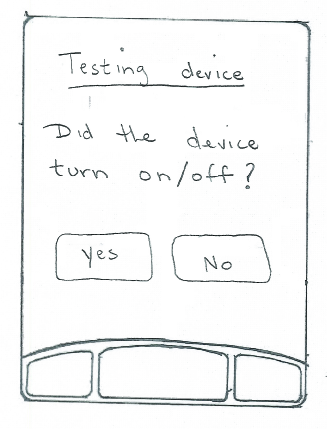 Testing device
Did the device
turn on/off?
Yes
No